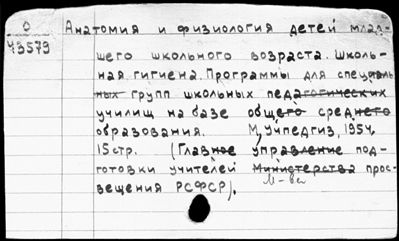 О
43579
Анатомия и физиология детей млад-
шего школьного возраста. Школь-
ная гигиена. Программы для специаль-
ных групп школьных педагогических
училищ на базе общего среднего
образования. М, Учпедгиз, 1954.
15 стр. (Главное управление под-
готовки учителей Министерства прос-
М-ва
вещения РСФСР).